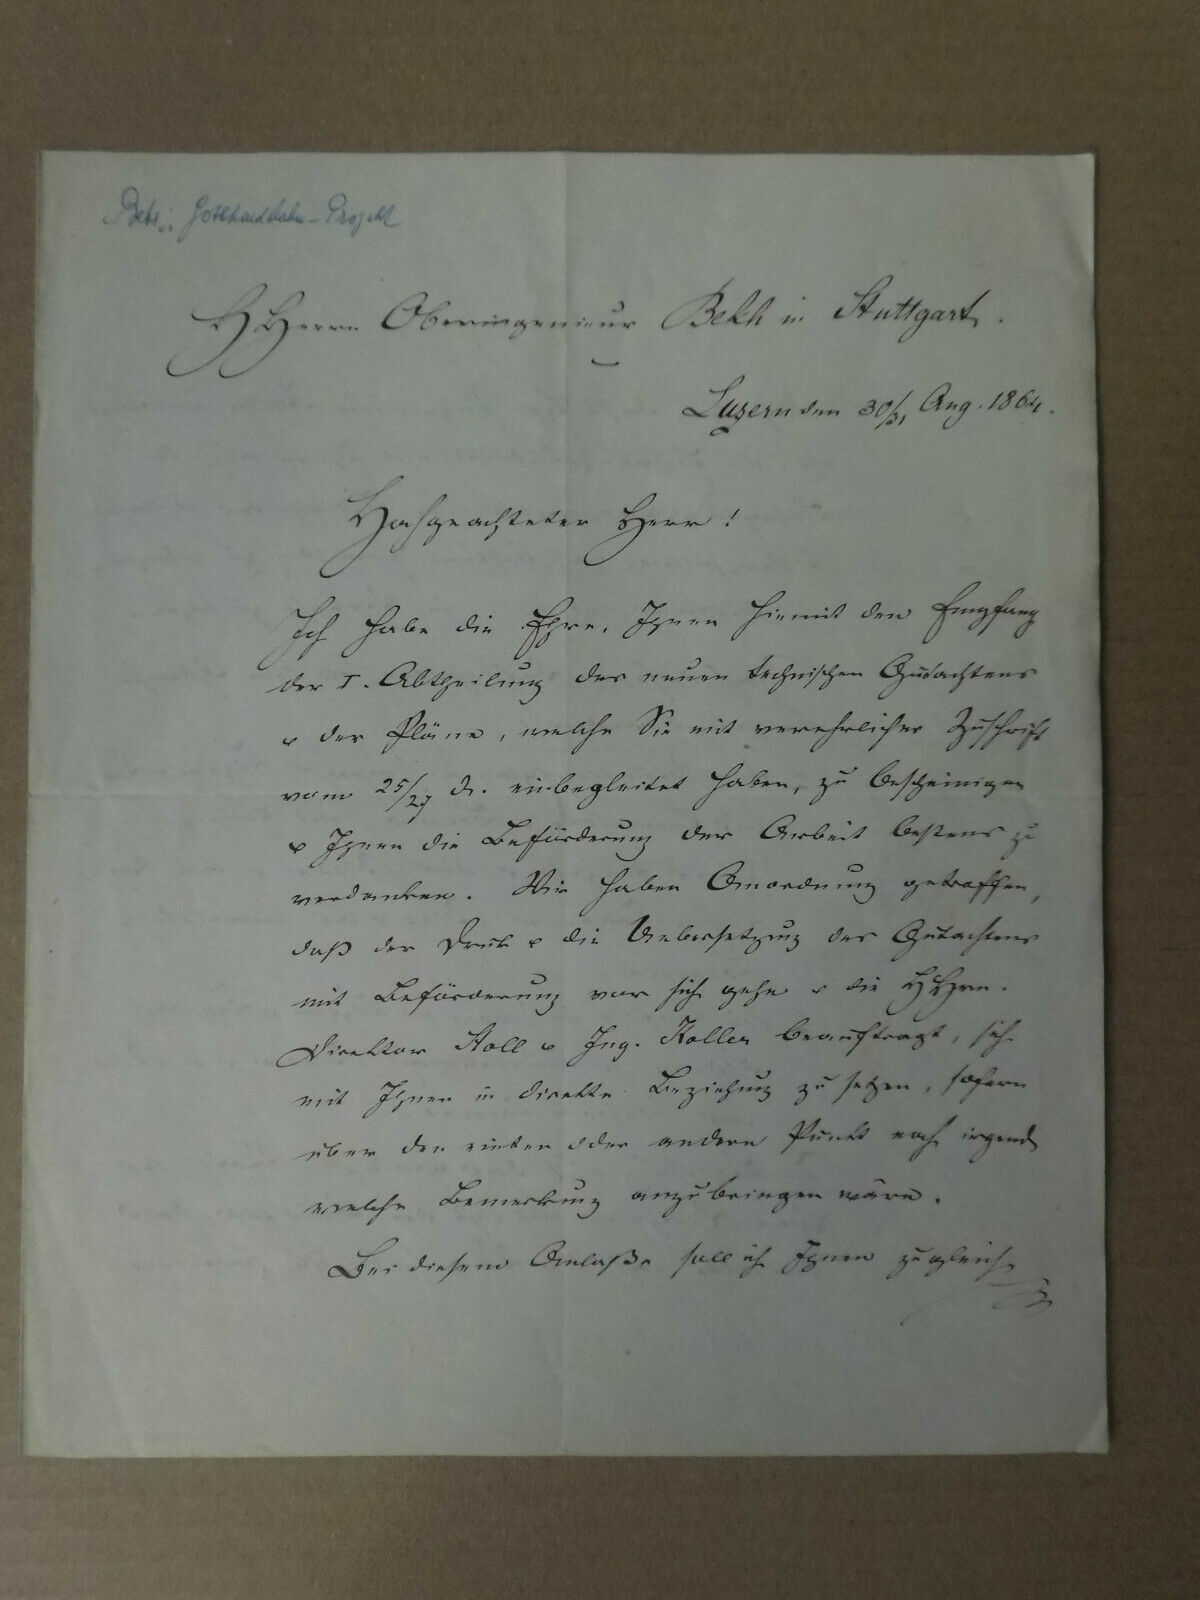 Betr. Gotthardbahn-Projekt
HHerrn Oberingenieur Bekh in Stuttgart.
Luzern den 30/31 Aug. 1864.
Hochgeachteter Herr!
Ich habe die Ehre, Ihnen hiemit den Empfang
der I. Abtheilung des neuen technischen Gutachtens
u der Pläne, welche Sie mit verehrlicher Zuschrift
vom 25/27 d. einbegleitet haben, zu bescheinigen
u Ihnen die Beförderung der Arbeit bestens zu
verdanken. Wir haben Anordnung getroffen,
daß der Druk u die Uebersetzung des Gutachtens
mit Beförderung vor sich gehe u die HHrn.
Direktor Stoll u Ing. Koller beauftragt, sich
mit Ihnen in direkte Beziehung zu setzen, sofern
über den einten oder andern Punkt noch irgend
welche Bemerkung anzubringen wäre.
Bei diesem Anlaße soll ich Ihnen zugleich